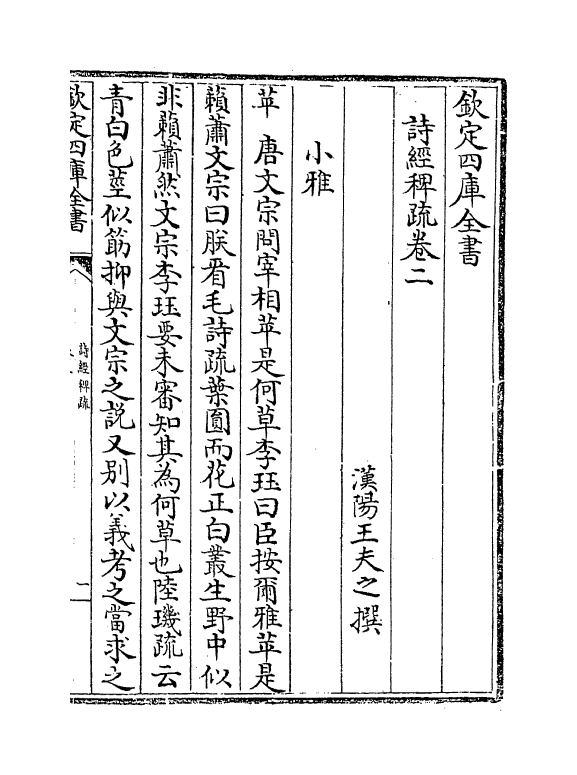 欽定四庫全書
詩經稗疏卷二
漢陽王夫之撰
小雅
苹 唐文宗問宰相苹是何草李珏曰臣按爾雅苹是
賴蕭文宗曰朕看毛詩疏葉圓而花正白叢生野中似
非賴蕭然文宗李珏要未審知其為何草也陸璣疏云
青白色莖似筯抑與文宗之說又別以義考之當求之
欽定四庫全書
詩經稗疏